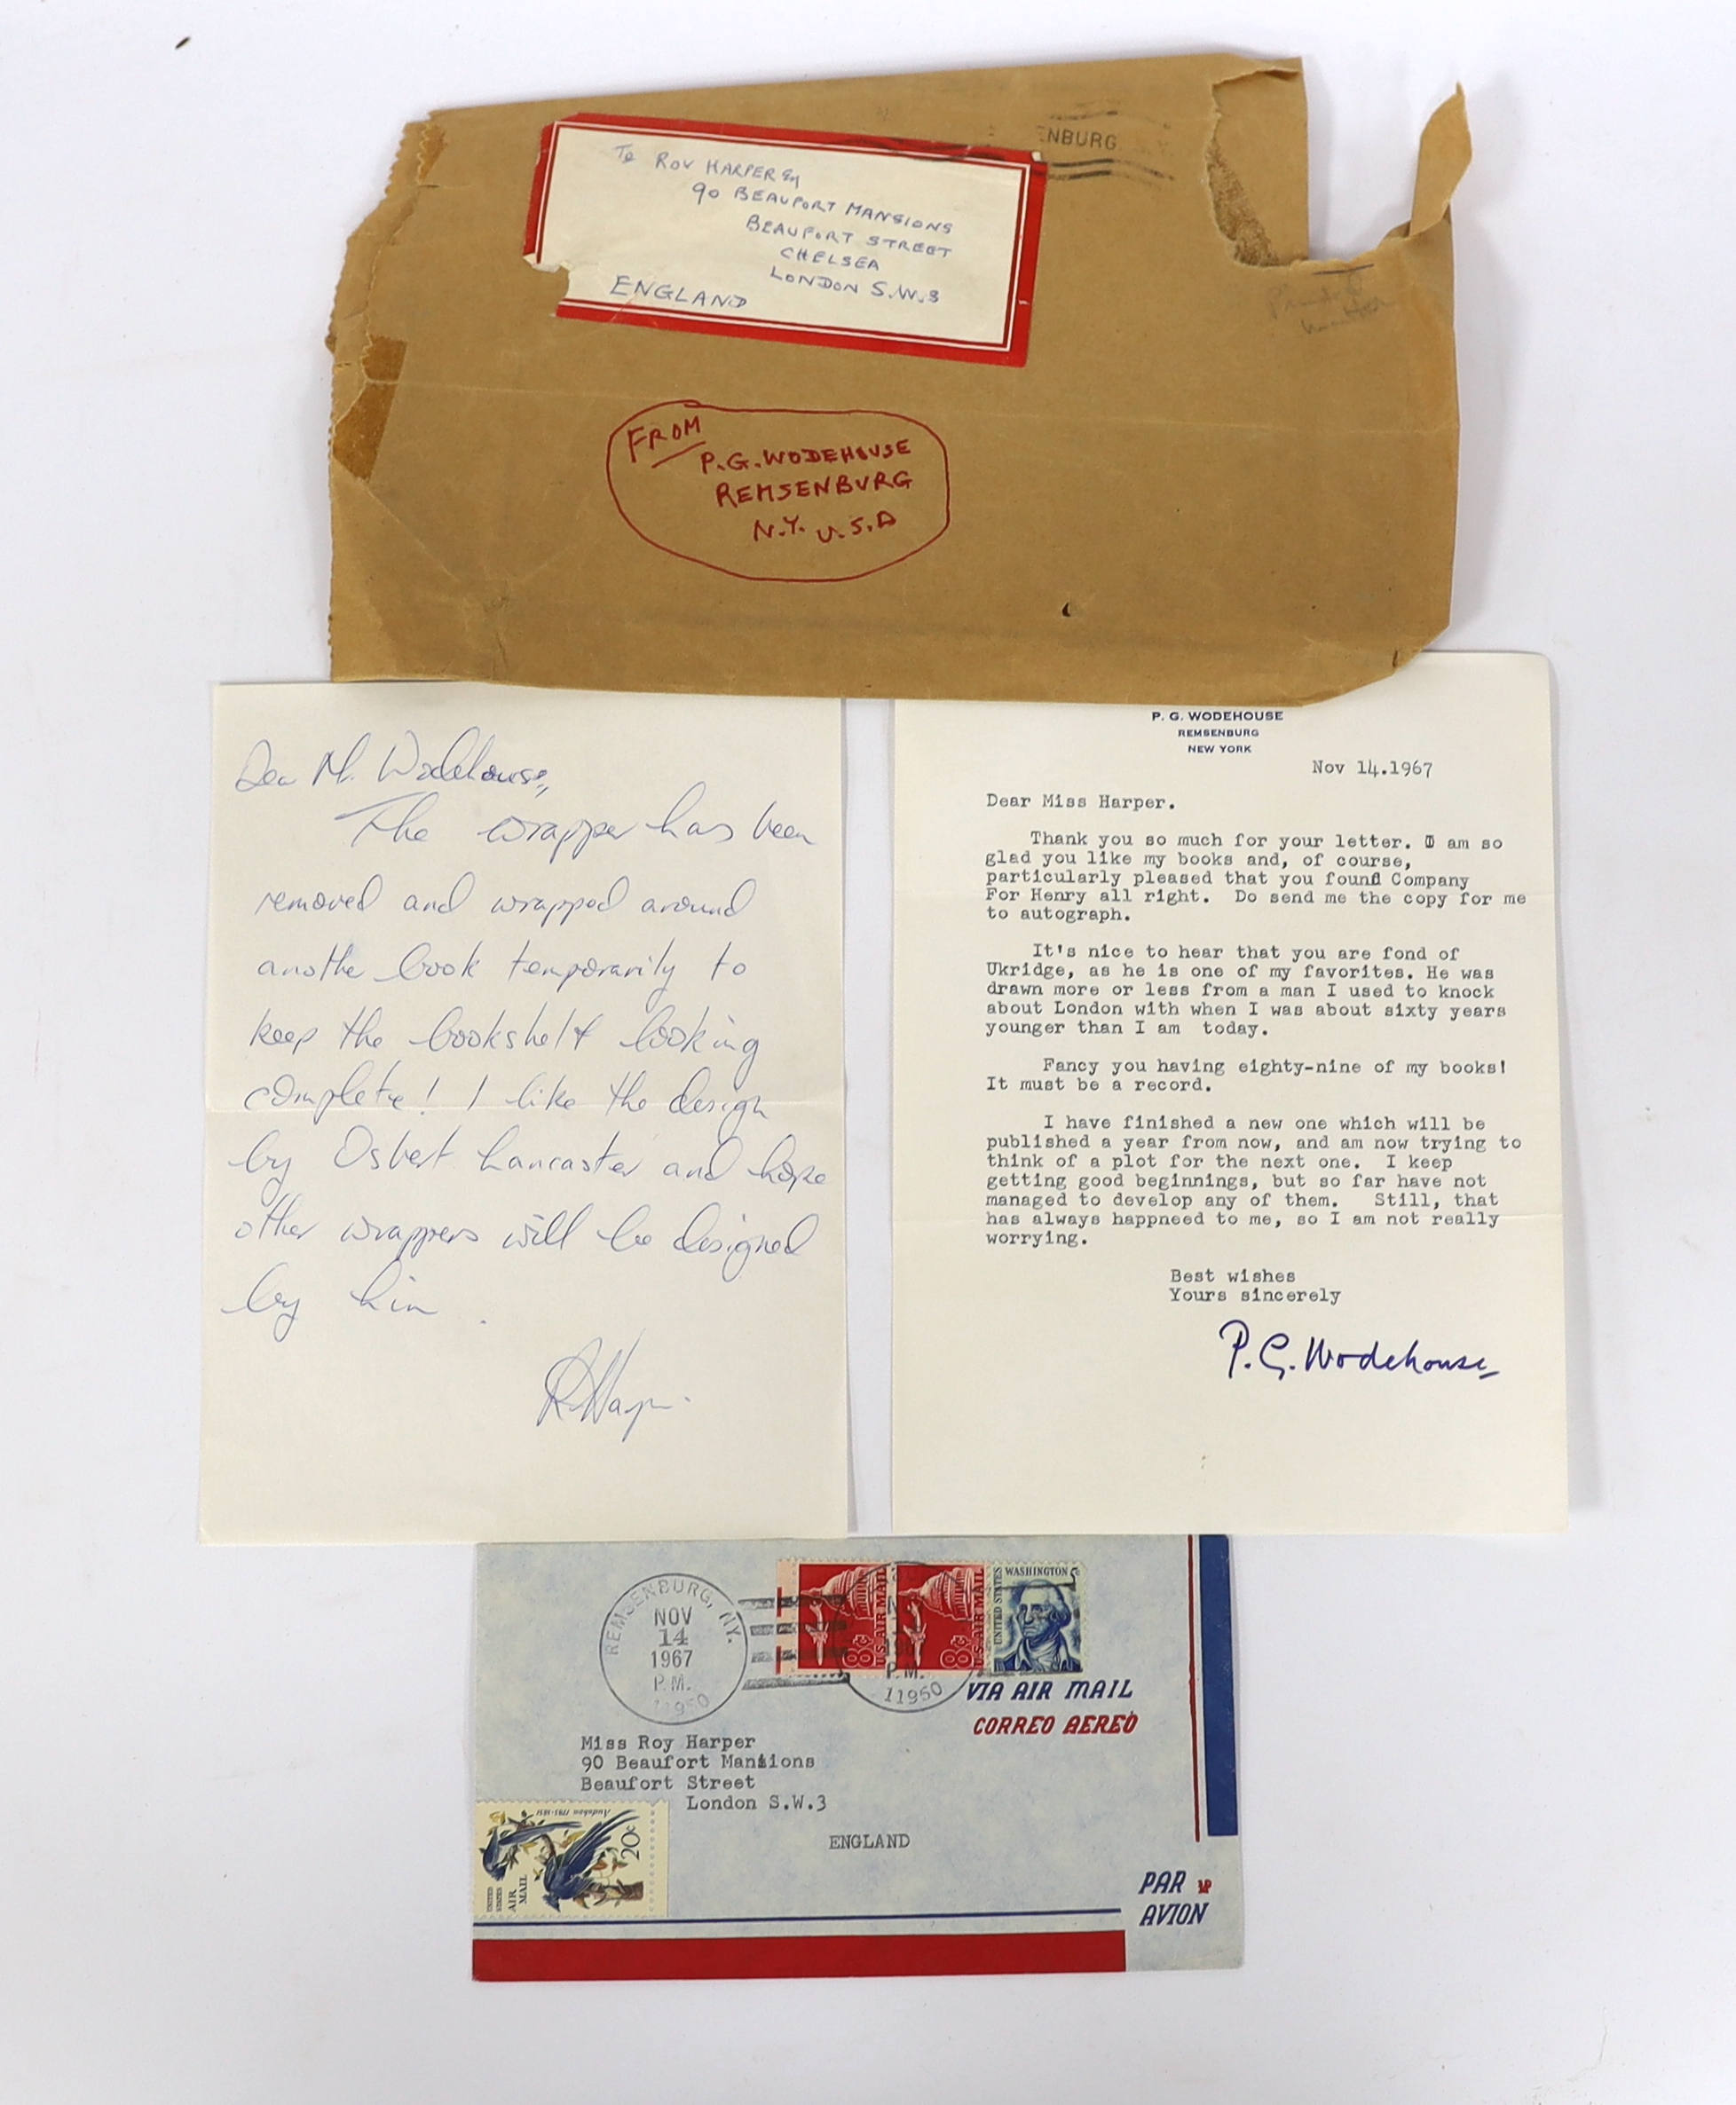 To ROY HARPER Esq
90 BEAUFORT MANSIONS
BEAUFORT STREET
CHELSEA
LONDON S.W.3
ENGLAND
ENBURG
FROM
P.G. WODEHOUSE
REMSENBURG
N.Y. U.S.A
Dear Mr. Wodehouse,
The wrapper has been
removed and wrapped around
another book temporarily to
keep the bookshelf looking
complete! I like the design
by Osbert Lancaster and hope
other wrappers will be designed
by him.
R Harper
P. G. WODEHOUSE
REMSENBURG
NEW YORK
Nov 14.1967
Dear Miss Harper.
Thank you so much for your letter. I am so
glad you like my books and, of course,
particularly pleased that you found Company
For Henry all right. Do send me the copy for me
to autograph.
It's nice to hear that you are fond of
Ukridge, as he is one of my favorites. He was
drawn more or less from a man I used to knock
about London with when I was about sixty years
younger than I am today.
Fancy you having eighty-nine of my books!
It must be a record.
I have finished a new one which will be
published a year from now, and am now trying to
think of a plot for the next one. I keep
getting good beginnings, but so far have not
managed to develop any of them. Still, that
has always happneed to me, so I am not really
worrying.
Best wishes
Yours sincerely
P. G. Wodehouse
REMSENBURG, N.Y.
NOV
14
1967
P.M.
11950
P.M.
11950
8c
U.S. AIR MAIL
8c
U.S. AIR MAIL
UNITED STATES
WASHINGTON 5c
VIA AIR MAIL
CORREO AEREO
Miss Roy Harper
90 Beaufort Mansions
Beaufort Street
London S.W.3
ENGLAND
Audubon 1785-1851
20c
UNITED STATES
AIR MAIL
PAR
AVION